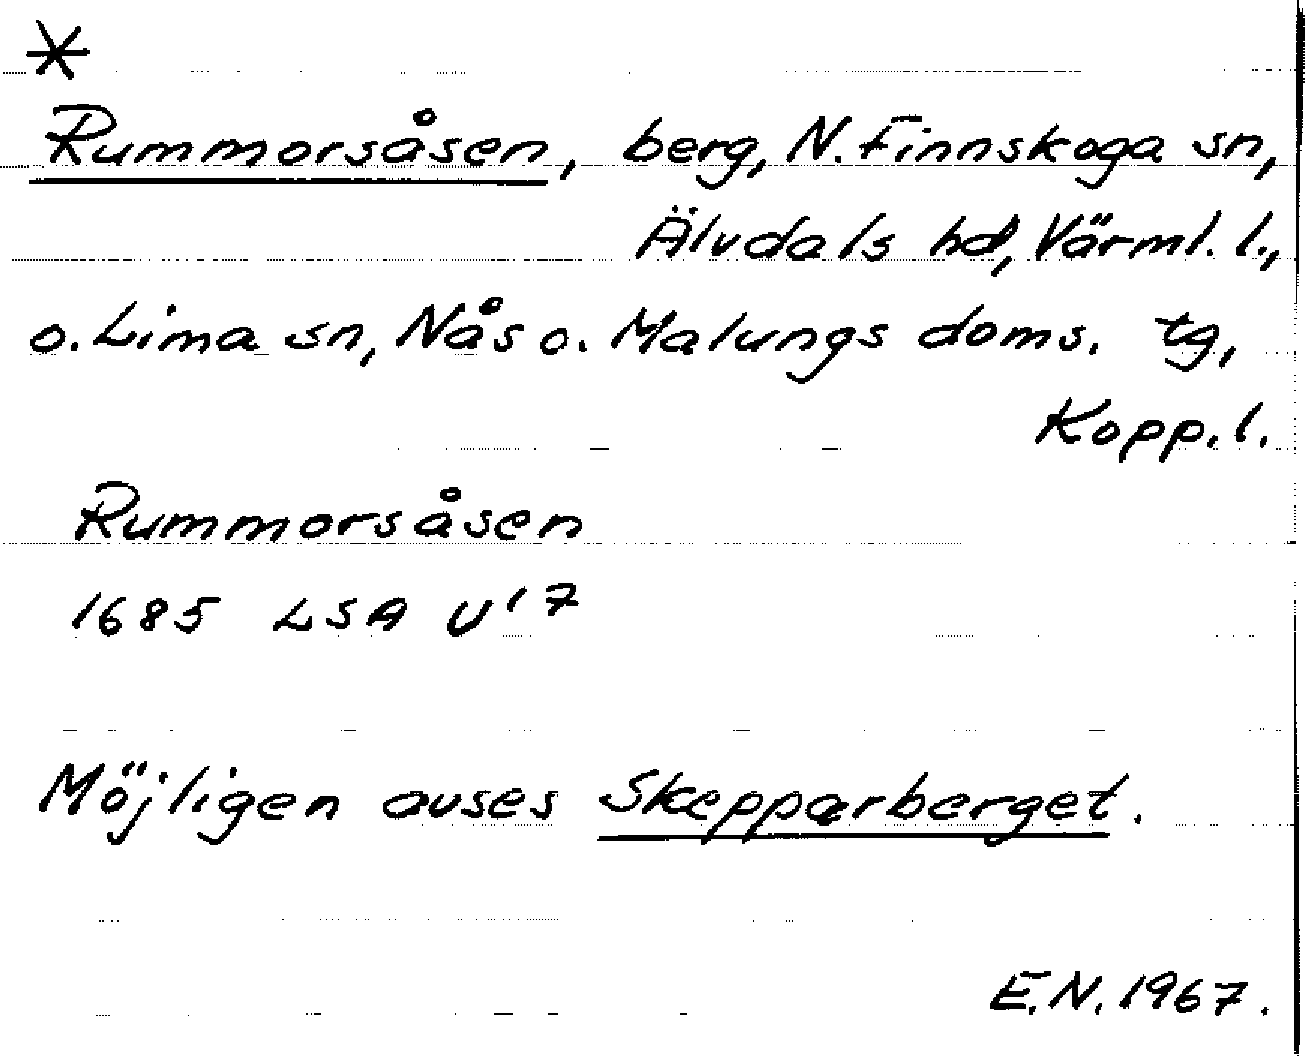 *
Rummorsåsen, berg, N. Finnskoga sn,
Älvdals hd, Värml. l.,
o. Lima sn, Nås o. Malungs doms. tg,
Kopp. l.
Rummorsåsen
1685 LSA U17
Möjligen avses Skepparberget.
E.N. 1967.